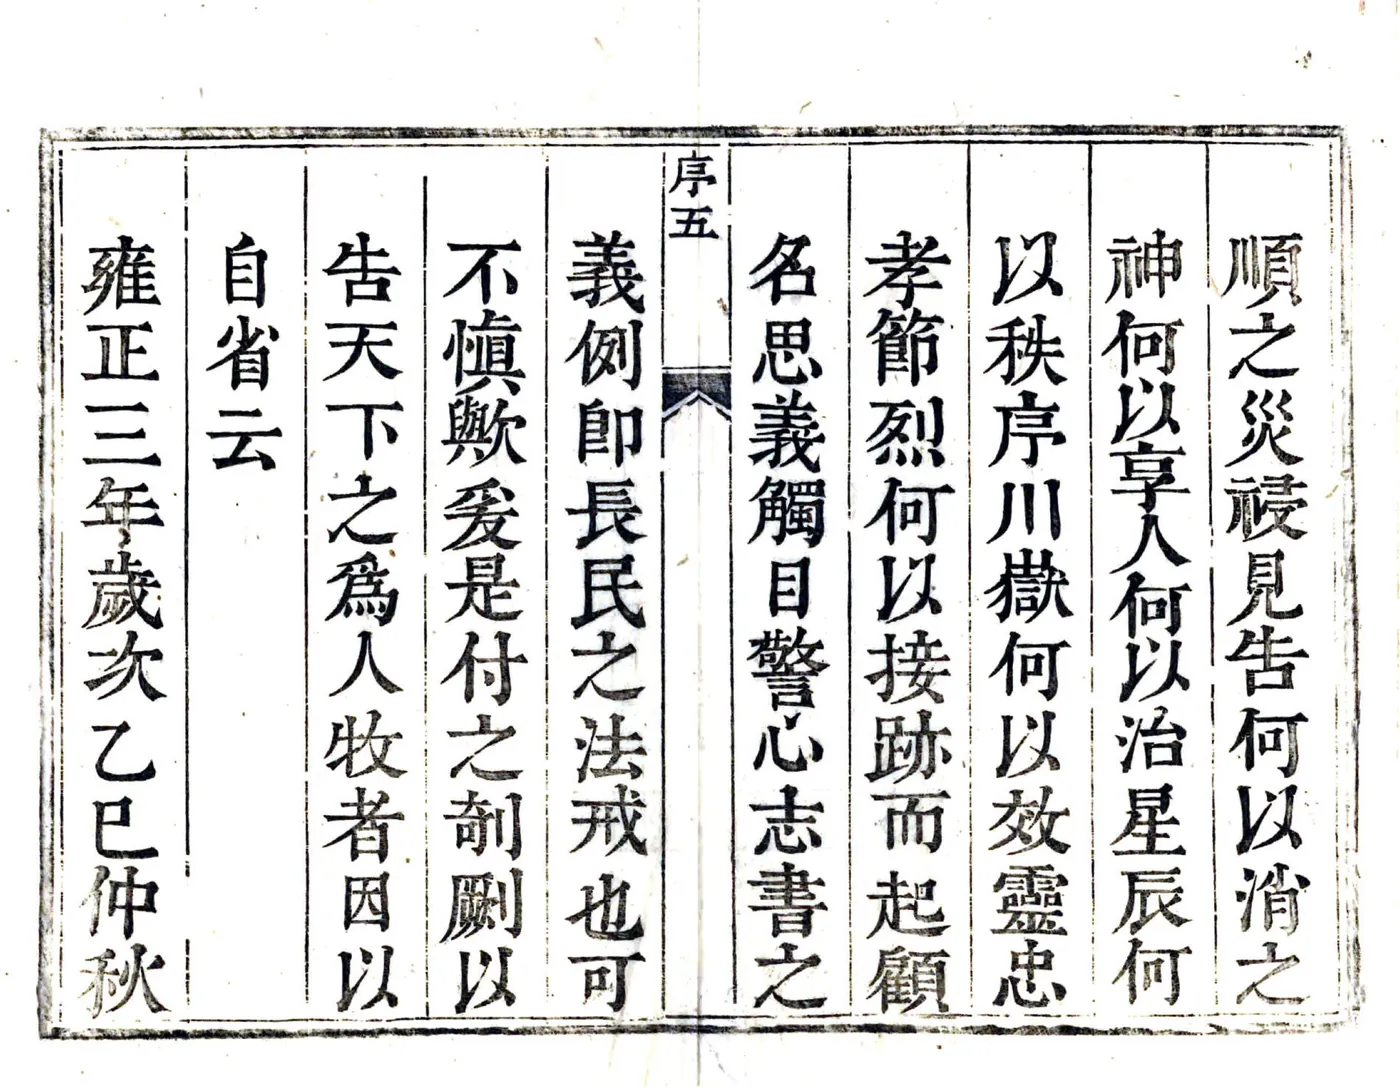 順之災祲見告何以消之
神何以享人何以治星辰何
以秩序川嶽何以效靈忠
孝節烈何以接跡而起顧
名思義觸目警心志書之
序五
義例卽長民之法戒也可
不愼歟爰是付之剞劂以
告天下之爲人牧者因以
自省云
雍正三年歲次乙巳仲秋